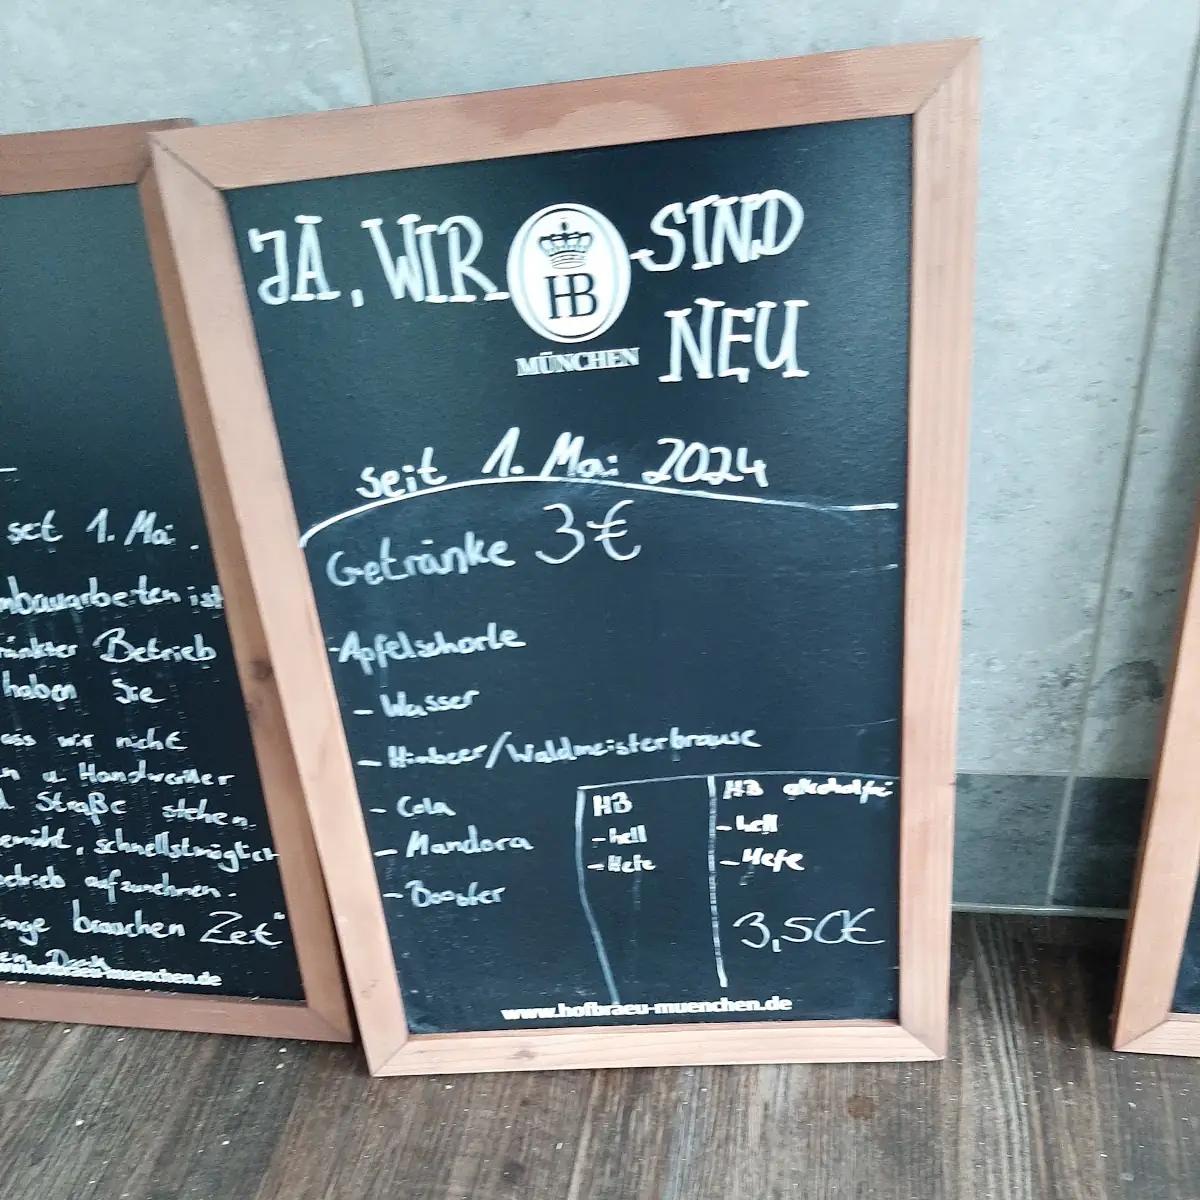 set 1. Mai.
mbauarbeiten ist
ränkter Betrieb
haben Sie
ass wir nicht
n u Handwerker
d Straße stehen.
emüht, schnellstmöglich
etrieb aufzunehmen.
nge brauchen Zeit"
en Dank
www.hofbraeu-muenchen.de
JA, WIR HB SIND
MÜNCHEN NEU
seit 1. Mai 2024
Getränke 3€
-Apfelschorle
- Wasser
- Himbeer/Waldmeisterbrause
- Cola
- Mandora
- Booster
HB
- hell
- Hefe
HB alkoholfrei
- hell
- Hefe
3,50€
www.hofbraeu-muenchen.de